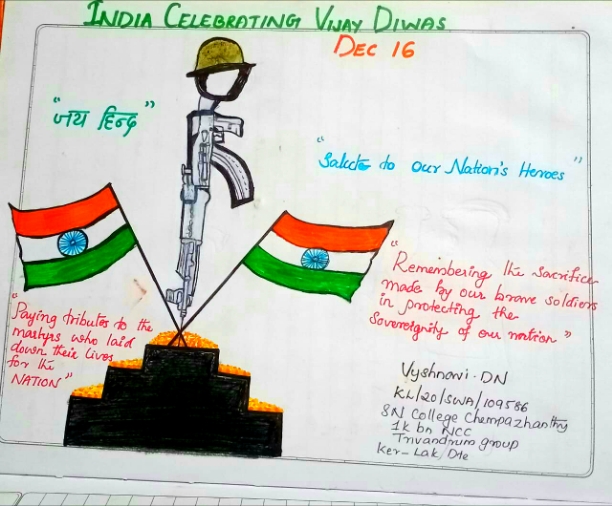 INDIA CELEBRATING VIJAY DIWAS
DEC 16
"जय हिन्द"
"Salute to our Nation's Heroes"
"Remembering the Sacrifice
made by our brave soldiers
in protecting the
Sovereignity of our nation"
"Paying tributes to the
martyrs who laid
down their lives
for the
NATION"
Vyshnavi-DN
KL/20/SWA/109586
SN College Chempazhanthy
1k bn NCC
Trivandrum group
Ker-Lak/Dte